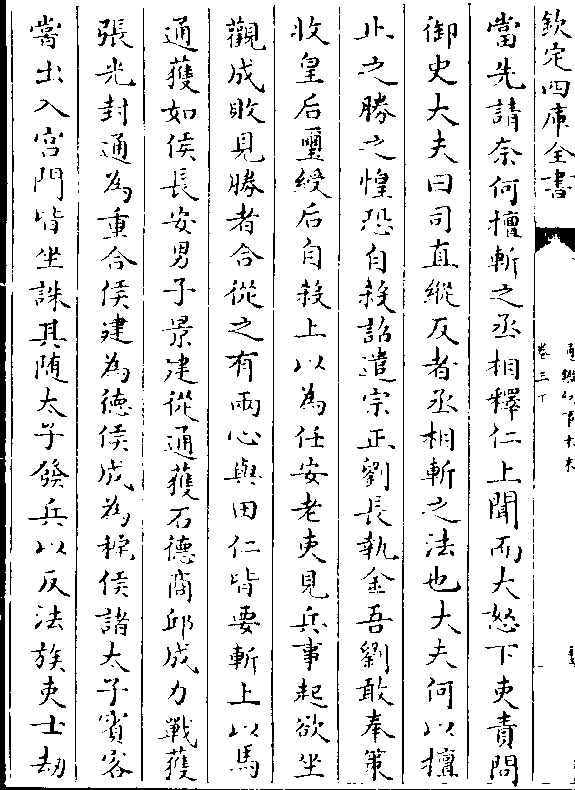 欽定四庫全書
卷三下
當先請奈何擅斬之丞相釋仁上聞而大怒下吏責問
御史大夫曰司直縱反者丞相斬之法也大夫何以擅
止之勝之惶恐自殺詔遣宗正劉長執金吾劉敢奉策
收皇后璽綬后自殺上以為任安老吏見兵事起欲坐
觀成敗見勝者合從之有兩心與田仁皆要斬上以馬
通獲如侯長安男子景建從通獲石德商邱成力戰獲
張光封通為重合侯建為德侯成為秺侯諸太子賓客
嘗出入宮門皆坐誅其隨太子發兵以反法族吏士劫